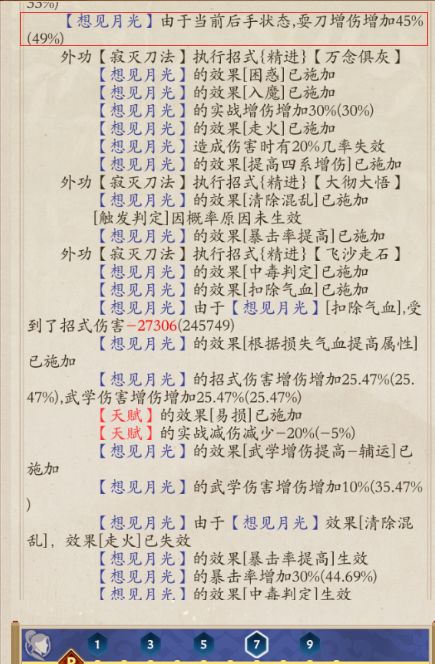 33%)
【想见月光】由于当前后手状态,耍刀增伤增加45%
(49%)
外功【寂灭刀法】执行招式{精进}【万念俱灰】
【想见月光】的效果[困惑]已施加
【想见月光】的效果[入魔]已施加
【想见月光】的实战增伤增加30%(30%)
【想见月光】的效果[走火]已施加
【想见月光】造成伤害时有20%几率失效
【想见月光】的效果[提高四系增伤]已施加
外功【寂灭刀法】执行招式{精进}【大彻大悟】
【想见月光】的效果[清除混乱]已施加
[触发判定]因概率原因未生效
【想见月光】的效果[暴击率提高]已施加
外功【寂灭刀法】执行招式{精进}【飞沙走石】
【想见月光】的效果[中毒判定]已施加
【想见月光】的效果[扣除气血]已施加
【想见月光】由于【想见月光】[扣除气血],受
到了招式伤害-27306(245749)
【想见月光】的效果[根据损失气血提高属性]
已施加
【想见月光】的招式伤害增伤增加25.47%(25.
47%),武学伤害增伤增加25.47%(25.47%)
【天赋】的效果[易损]已施加
【天赋】的实战减伤减少-20%(-5%)
【想见月光】的效果[武学增伤提高-辅运]已
施加
【想见月光】的武学伤害增伤增加10%(35.47%
)
【想见月光】由于【想见月光】效果[清除混
乱]，效果[走火]已失效
【想见月光】的效果[暴击率提高]生效
【想见月光】的暴击率增加30%(44.69%)
【想见月光】的效果[中毒判定]生效
1 3 5 7 9